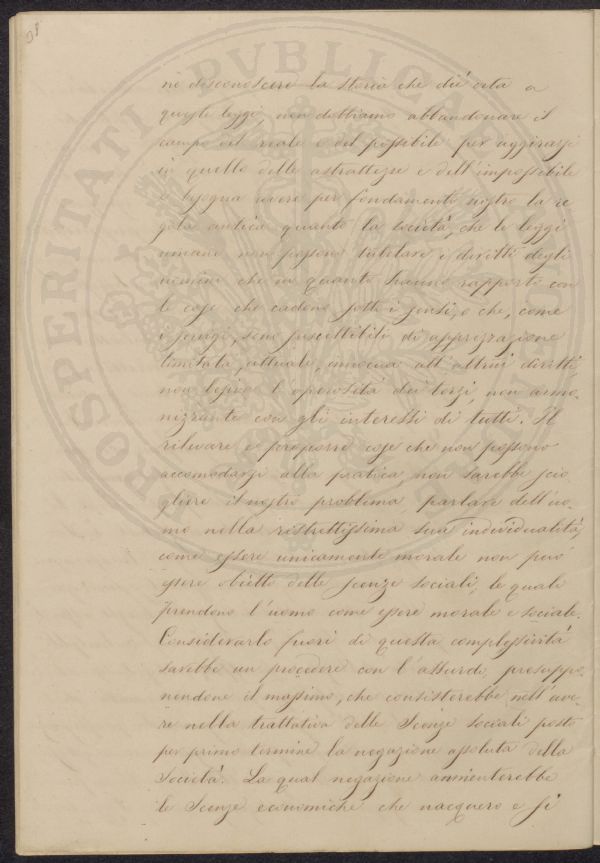 98
PROSPERITATI PUBLICAE
né disconoscere la storia che diè vita a
queste leggi non dobbiamo abbandonare il
campo del reale e del possibile per aggirarsi
in quello delle astrattezze e dell'impossibile
e bisogna avere per fondamento nostro la re
gola antica quanto la società, che le leggi
umane non possono tutelare i diritti degli
uomini che in quanto hanno rapporto con
le cose che cadono sotto i sensi, e che, come
i sono suscettibili di apprezzazione
limitata, attuale, innocua all'altrui diritti,
non lesiva l'operosità dei terzi, non armo-
nizzante con gli interessi di tutti. Il
rilevare e proporre cose che non possono
accomodarsi alla pratica, non sarebbe scio
gliere il nostro problema parlare dell'uo-
mo nella ristrettissima sua individualità,
come essere unicamente morale non può
essere obietto delle scenze sociali, le quali
prendono l'uomo come essere morale e sociale.
Considerarlo fuori di questa complessività
sarebbe un procedere con l'assurdo, presuppo-
nendone il massimo, che consisterebbe nell'ave-
re nella trattativa delle Scenze sociali posto
per primo termine la negazione assoluta della
Società. La qual negazione annienterebbe
le Scenze economiche che nacquero e si